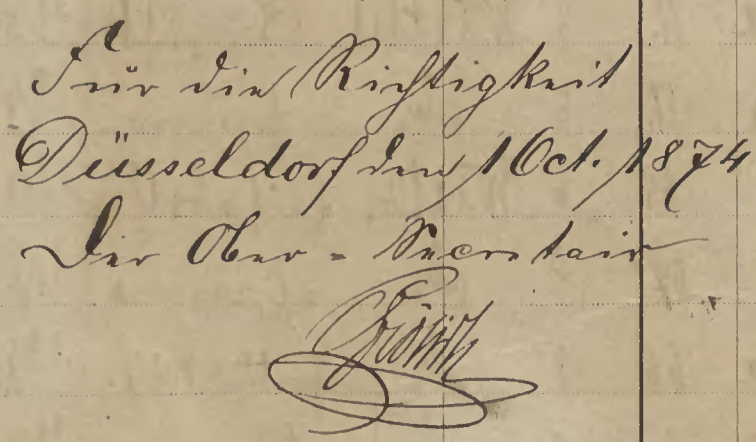 Für die Richtigkeit
Düsseldorf den 1 Oct. 1874
Der Ober-Secretair